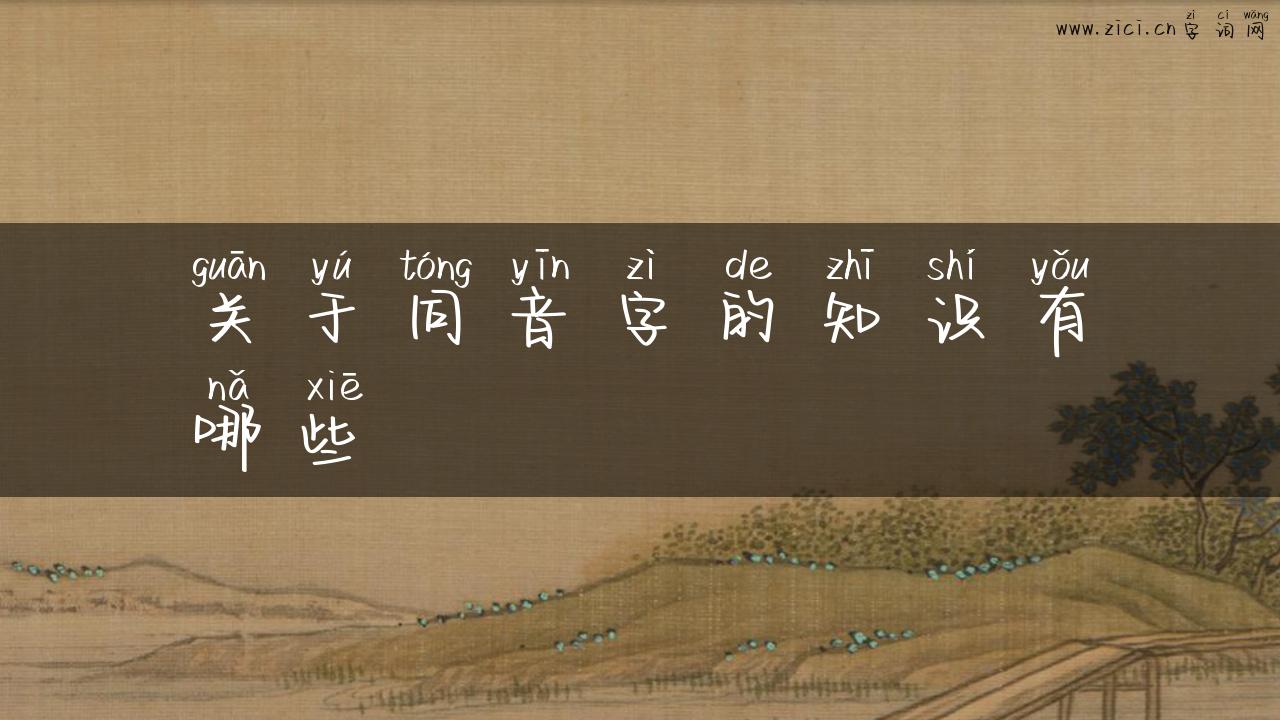 zì cí wǎng
www.zici.cn 字 词 网
guān yú tóng yīn zì de zhī shí yǒu
关 于 同 音 字 的 知 识 有
nǎ xiē
哪 些